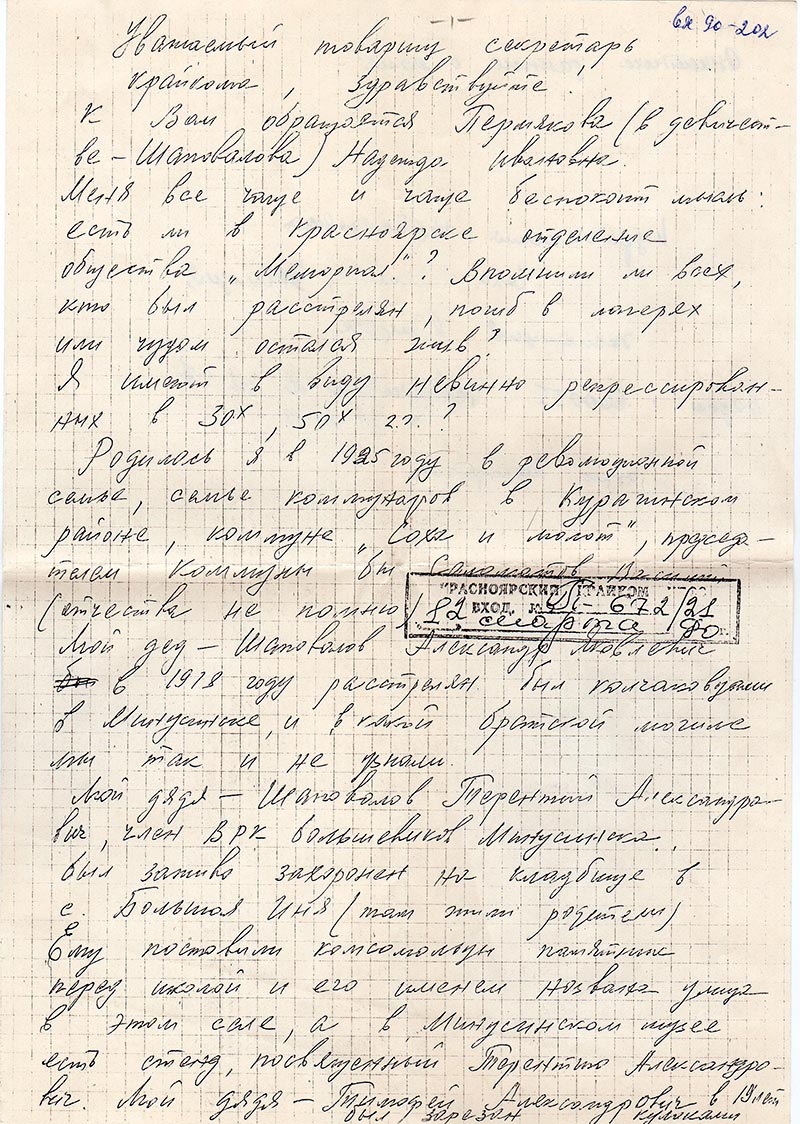 вх 90-202
Уважаемый товарищ секретарь
крайкома, здравствуйте!
К Вам обращается Пермякова (в девичест-
ве – Шаповалова) Надежда Ивановна.
Меня все чаще и чаще беспокоит мысль:
есть ли в Красноярске отделение
общества „Мемориал"? Вспомнили ли всех,
кто был расстрелян, погиб в лагерях
или чудом остался жив?
Я имею в виду невинно репрессирован-
ных в 30х, 50х гг.?
Родилась я в 1925 году в революционной
семье, семье коммунаров в Курагинском
районе, коммуне „Соха и молот", председа-
телем коммуны был Саломатов Василий
(отчества не помню)
КРАСНОЯРСКИЙ КРАЙКОМ
ВХОД. № 672/21
12 марта 90
Мой дед – Шаповалов Александр Яковлевич
в 1918 году расстрелян был колчаковцами
в Минусинске, и в какой братской могиле
мы так и не узнали.
Мой дядя – Шаповалов Терентий Александро-
вич, член ВРК большевиков Минусинска,
был заживо захоронен на кладбище в
с. Большая Иня (там жили родители)
Ему поставили комсомольцы памятник
перед школой и его именем названа улица
в этом селе, а в Минусинском музее
есть стенд, посвященный Терентию Александро-
вич. Мой дядя – Тимофей Александрович в 19 лет
был зарезан кулаками